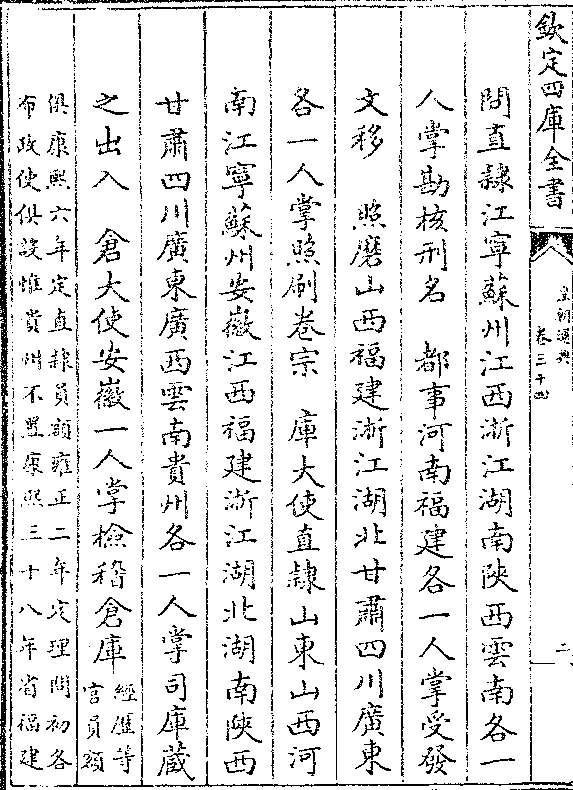 欽定四庫全書
皇朝通典
卷三十四
二
問直隸江寧蘇州江西浙江湖南陝西雲南各一
人掌勘核刑名　都事河南福建各一人掌受發
文移　照磨山西福建浙江湖北甘肅四川廣東
各一人掌照刷卷宗　庫大使直隸山東山西河
南江寧蘇州安徽江西福建浙江湖北湖南陝西
甘肅四川廣東廣西雲南貴州各一人掌司庫藏
之出入　倉大使安徽一人掌檢稽倉庫
經歷等
官員額
俱康熙六年定直隸員額雍正二年定理問初各
布政使俱設惟貴州不置康熙三十八年省福建